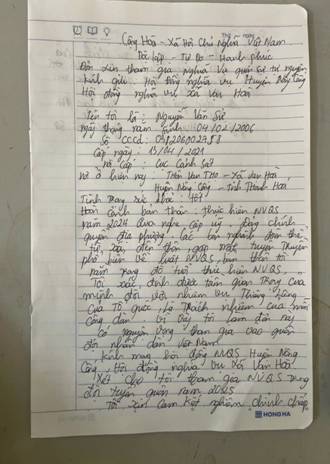 Cộng Hòa - Xã Hội Chủ Nghĩa Việt Nam
Độc lập - Tự Do - Hạnh phúc
Đơn xin tham gia nghĩa vụ quân sự tự nguyện
Kính gửi: Hội đồng nghĩa vụ Huyện Nông Cống
Hội đồng nghĩa vụ xã Vạn Hoà
Tên tôi là: Nguyễn Văn Sử
Ngày tháng năm sinh 04/02/2006
Số CCCD:
Cấp ngày: 13/04/2021
Nơi Cấp: Cục Cảnh Sát
Nơi ở hiện nay: Thôn Văn - Xã Vạn Hoà,
Huyện Nông Cống - tỉnh Thanh Hoá
Tình Trạng sức khoẻ: tốt
Hoàn cảnh bản thân: thực hiện NVQS
năm 2024 được nghe cấp uỷ Đảng chính
quyền địa phương các ban nghành đoàn thể
đến thăm gặp mặt, tuyên truyền
phổ biến về luật NVQS, bản thân tôi
nằm trong độ tuổi thực hiện NVQS,
Tôi xác định được tầm quan trọng của
mình đối với nhiệm vụ
của Tổ quốc, là trách nhiệm của mỗi
Công dân. Vì vậy tôi làm đơn này
có nguyện vọng tham gia vào quân
đội nhân dân Việt Nam
Kính mong hội đồng NVQS Huyện Nông
Cống, Hội đồng nghĩa vụ xã Vạn Hoà
xét cho tôi tham gia NVQS trong
đợt tuyển quân năm 2025
Tôi xin cam kết nghiêm chỉnh chấp
HONG HA